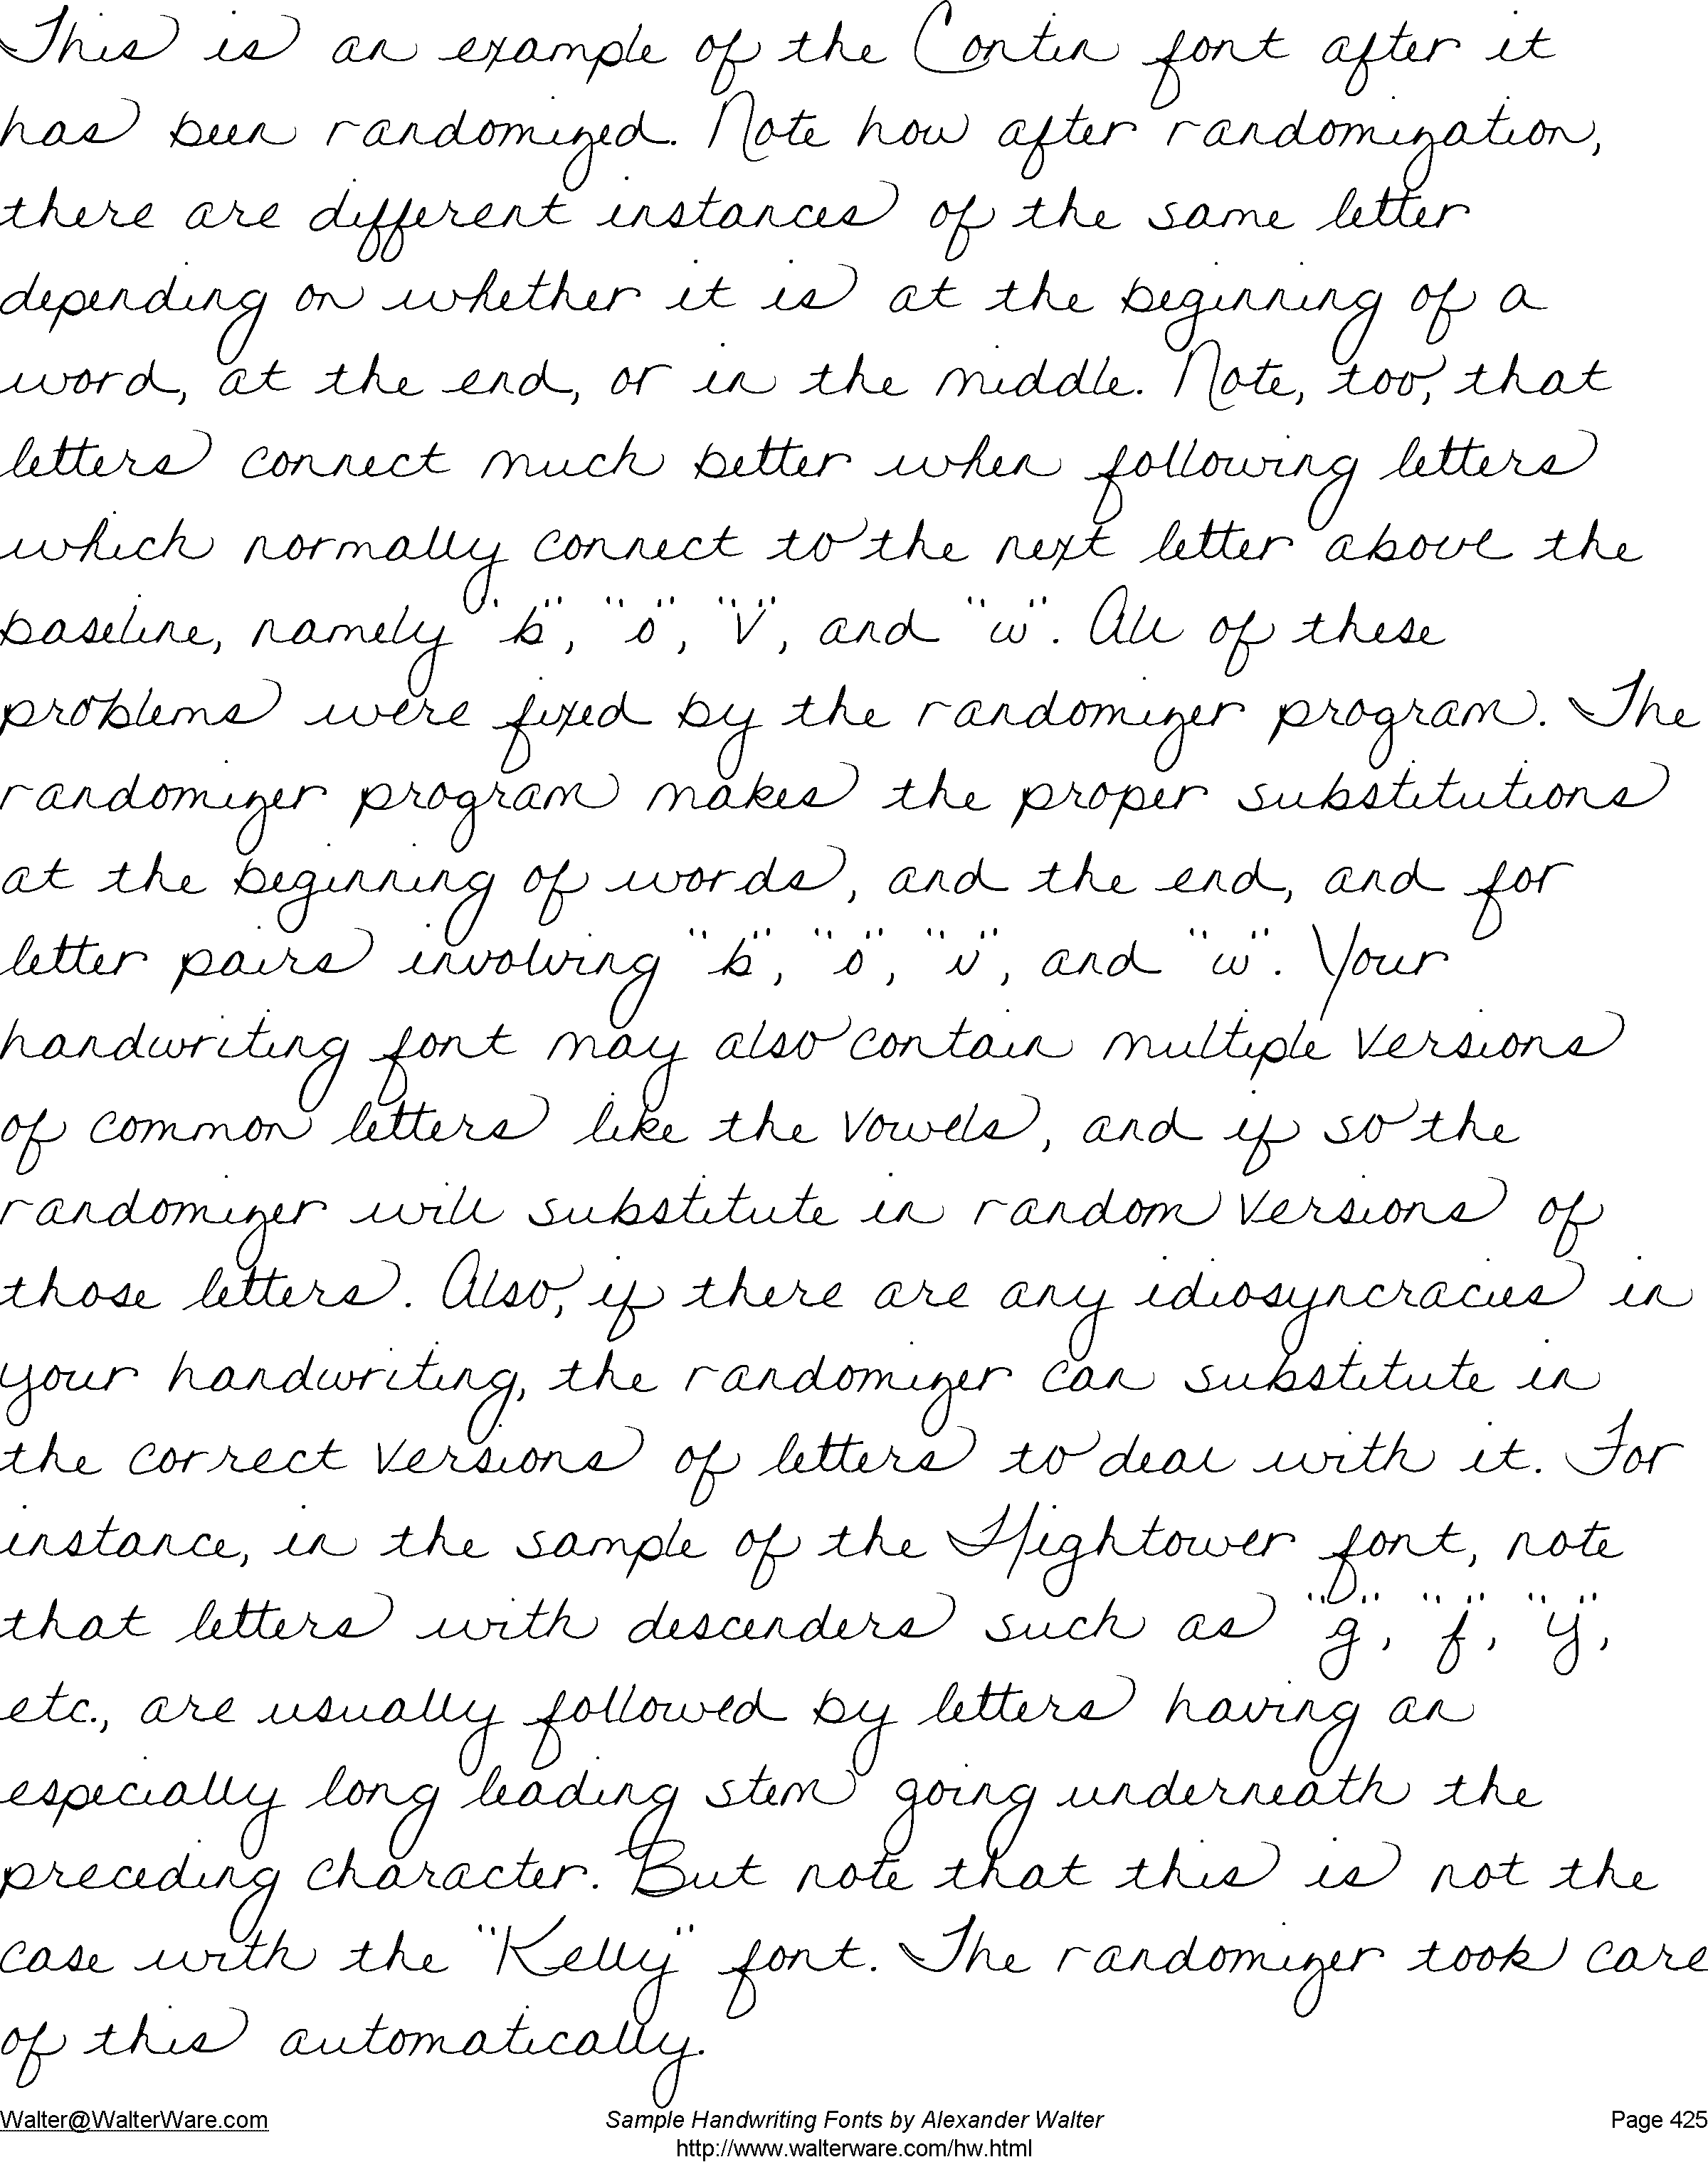 This is an example of the Contin font after it
has been randomized. Note how after randomization,
there are different instances of the same letter
depending on whether it is at the beginning of a
word, at the end, or in the middle. Note, too, that
letters connect much better when following letters
which normally connect to the next letter above the
baseline, namely "b", "o", "v", and "w". All of these
problems were fixed by the randomizer program. The
randomizer program makes the proper substitutions
at the beginning of words, and the end, and for
letter pairs involving "b", "o", "v", and "w". Your
handwriting font may also contain multiple versions
of common letters like the vowels, and if so the
randomizer will substitute in random versions of
those letters. Also, if there are any idiosyncracies in
your handwriting, the randomizer can substitute in
the correct versions of letters to deal with it. For
instance, in the sample of the Hightower font, note
that letters with descenders such as "g", "f", "y",
etc., are usually followed by letters having an
especially long leading stem going underneath the
preceding character. But note that this is not the
case with the "Kelly" font. The randomizer took care
of this automatically.
Walter@WalterWare.com Sample Handwriting Fonts by Alexander Walter Page 425
http://www.walterware.com/hw.html